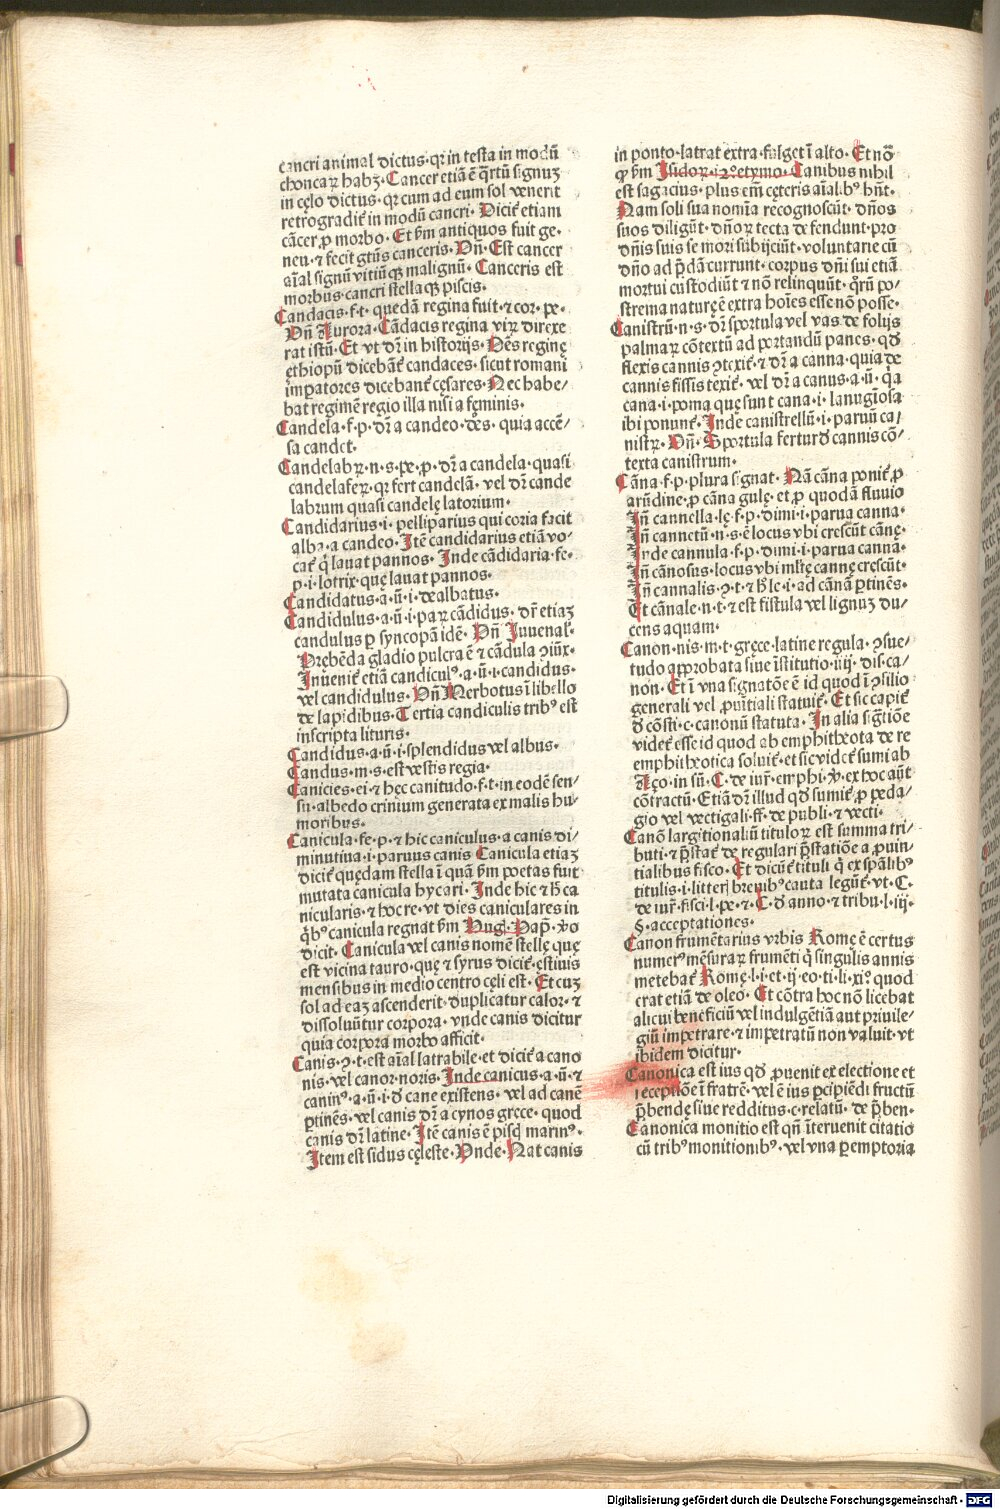 cancri animal dictus·qꝛ in testa in modū
choncaꝝ habꝫ·Cancer etiā ē q̄rtū signuꝫ
in cęlo dictus·qꝛ cum ad eum sol venerit
retrogradit᷑ in modū cancri·Dicit᷑ etiam
cācer ꝓ morbo·Et ẜm antiquos fuit ge·
neu·⁊ fecit gtūs canceris·Vn̄·Est cancer
aīal signū vitiūqꝫ malignū·Canceris est
morbus·cancri stella qꝫ piscis·
Candacis·f·t·quedā regina fuit·⁊ cor·pe·
Vn̄ Aurora·Cādacis regina viꝝ direxe
rat istū·Et vt dꝛ in historijs·Oēs reginę
ęthiopū dicebāt᷑ candaces·sicut romani
im̄patores dicebant᷑ cęsares·Nec habe/
bat regimē regio illa nisi a fęminis·
Candela·f·p·dꝛ a candeo·des·quia accē/
sa candet·
Candelabꝝ·n·s·pe·p·dꝛ a candela·quasi
candelafeꝝ·qꝛ fert candelā·vel dꝛ cande
labrum quasi candelę latorium·
Candidarius·i·pelliparius qui coria facit
alba·a candeo·Itē candidarius etiā vo·
cat᷑ q̇ lauat pannos·Inde cādidaria·fe·
p·i·lotrix·quę lauat pannos·
Candidatus·a·ū·i·dealbatus·
Candidulus·a·ū·i·paꝝ cādidus·dꝛ etiaꝫ
candulus ꝑ syncopā idē·Vn̄ Iuuenal·
Prębēda gladio pulcra ē ⁊ cādula ꝯiūx·
Inuenit᷑ etiā candiculꝰ·a·ū·i·candidus·
vel candidulus·Vn̄ Merbotus ī libello
de lapidibus·Tertia candiculis tribꝰ est
inscripta lituris·
Candidus·a·ū·i·splendidus vel albus·
Candus·m·s·est vestis regia·
Canicies·ei·⁊ hęc canitudo·f·t·in eodē sen/
su·albedo crinium generata ex malis hu/
moribus·
Canicula·fe·p·⁊ hic caniculus·a canis di/
minutiua·i·paruus canis Canicula etiaꝫ
dicit᷑ quędam stella ī quā ẜm poetas fuit
mutata canicula hycari·Inde hic ⁊ h̄ ca
nicularis·⁊ hoc re·vt dies caniculares in
q̇bꝰ canicula regnat ẜm Hug·Pap·ꝟo
dicit·Canicula vel canis nomē stellę quę
est vicina tauro·quę ⁊ syrus dicit᷑·ęstiuis
mensibus in medio centro cęli est·Et cuꝫ
sol ad eaꝫ ascenderit·duplicatur calor·⁊
dissoluūtur corpora·vnde canis dicitur
quia corpora morbo afficit·
Canis·ꝯ·t·est aīal latrabile·et dicit᷑ a cano
nis·vel canor·noris·Inde canicus·a·ū·⁊
caninꝰ·a·ū·i·d̄ cane existens·vel ad canē
ꝑtinēs·vel canis dꝛ a cynos gręce·quod
canis dꝛ latine·Itē canis ē pisq̇ marinꝰ·
Item est sidus cęleste·Vnde·Nat canis
in ponto·latrat extra·fulget ī alto·Et nō
ꝙ ẜm Isidoꝝ·i·12·etymo·Canibus nihil
est sagacius·plus em̄ cęteris aīalibꝰ hn̄t·
Nam soli sua nomīa recognoscūt·dn̄os
suos diligūt·dn̄oꝝ tecta defendunt·pro
dn̄is suis se mori subijciūt·voluntarie cū
dn̄o ad p̄dā currunt·corpus dn̄i sui etiā
mortui custodiūt ⁊ nō relinquūt·q̄rū po/
strema naturę ē extra hoīes esse nō posse·
Canistrū·n·s·dꝛ sportula vel vas de folijs
palmaꝝ cōtextū ad portandū panes·qd̄
flexis cannis ꝯtexit᷑·⁊ dꝛ a canna·quia de
cannis fissis texit᷑·vel dꝛ a canus·a·ū·q̇a
cana·i·poma quę sunt cana·i·lanugīosa
ibi ponunt᷑·Inde canistrellū·i·paruū ca/
nistꝝ·Vn̄·Sportula fertur d̄ cannis cō/
texta canistrum·
Cāna·f·p·plura signat·Nā cāna ponit᷑ ꝓ
arūdine·ꝓ cāna gulę·et ꝓ quodā fluuio
In̄ cannella·lę·f·p·dimi·i·parua canna·
In̄ cannetū·n·s·ē locus vbi crescūt cānę·
Inde cannula·f·p·dimi·i·parua cannā·
In̄ cānosus·locus vbi ml̄tę cannę crescūt·
In̄ cannalis·ꝯ·t·⁊ h̄ le·i·ad cānā ꝑtinēs·
Et cānale·n·t·⁊ est fistula vel lignuꝫ du/
cens aquam·
Canon·nis·m·t·gręce·latine regula·ꝯsue/
tudo approbata siue īstitutio·iij·dis·ca/
non·Et ī vna signatōe ē id quod ī ꝯsilio
generali vel ꝓuītiali statuit᷑·Et sic capit᷑
d̄ cōsti·c·canonū statuta·In alia sigtīōe
videt᷑ esse id quod ab emphitheota de re
emphitheotica soluit᷑·et sic videt᷑ sumi ab
Aço·in sū·C·de iur̄·emphi·ꝟ·ex hoc aūt
cōtractū·Etiā dꝛ illud qd̄ sumit᷑ ꝓ peda/
gio vel vectigali·ff·de publi·⁊ vecti·
Canō largitionaliū tituloꝝ est summa tri/
buti·⁊ p̄stat᷑ de regulari p̄statiōe a ꝓuin/
tialibus fisco·Et dicūt᷑ tituli q̇ ex spālibꝰ
titulis·i·litteris breuibꝰ cauta legūt᷑·vt·C·
de iur̄·fisci·l·pe·⁊·C·d̄ anno·⁊ tribu·l·iij·
§·acceptationes·
Canon frumētarius vrbis Romę ē certus
numerꝰ mēsuraꝝ frumēti q̇ singulis annis
metebat᷑ Romę·l·i·et·ij·eo·ti·li·xiꝰ quod
erat etiā de oleo·Et cōtra hoc nō licebat
alicui beneficiū vel indulgētiā aut priuile/
giū impetrare·⁊ impetratū non valuit·vt
ibidem dicitur·
Canonica est ius qd̄ ꝓuenit ex electione et
receptiōe ī fratrē·vel ē ius ꝑcipiēdi fructū
p̄bendę siue redditus·c·relatū·de p̄ben·
Canonica monitio est qn̄ īteruenit citatio
cū tribꝰ monitionibꝰ·vel vna ꝑemptoria
Digitalisierung gefördert durch die Deutsche Forschungsgemeinschaft - DFG